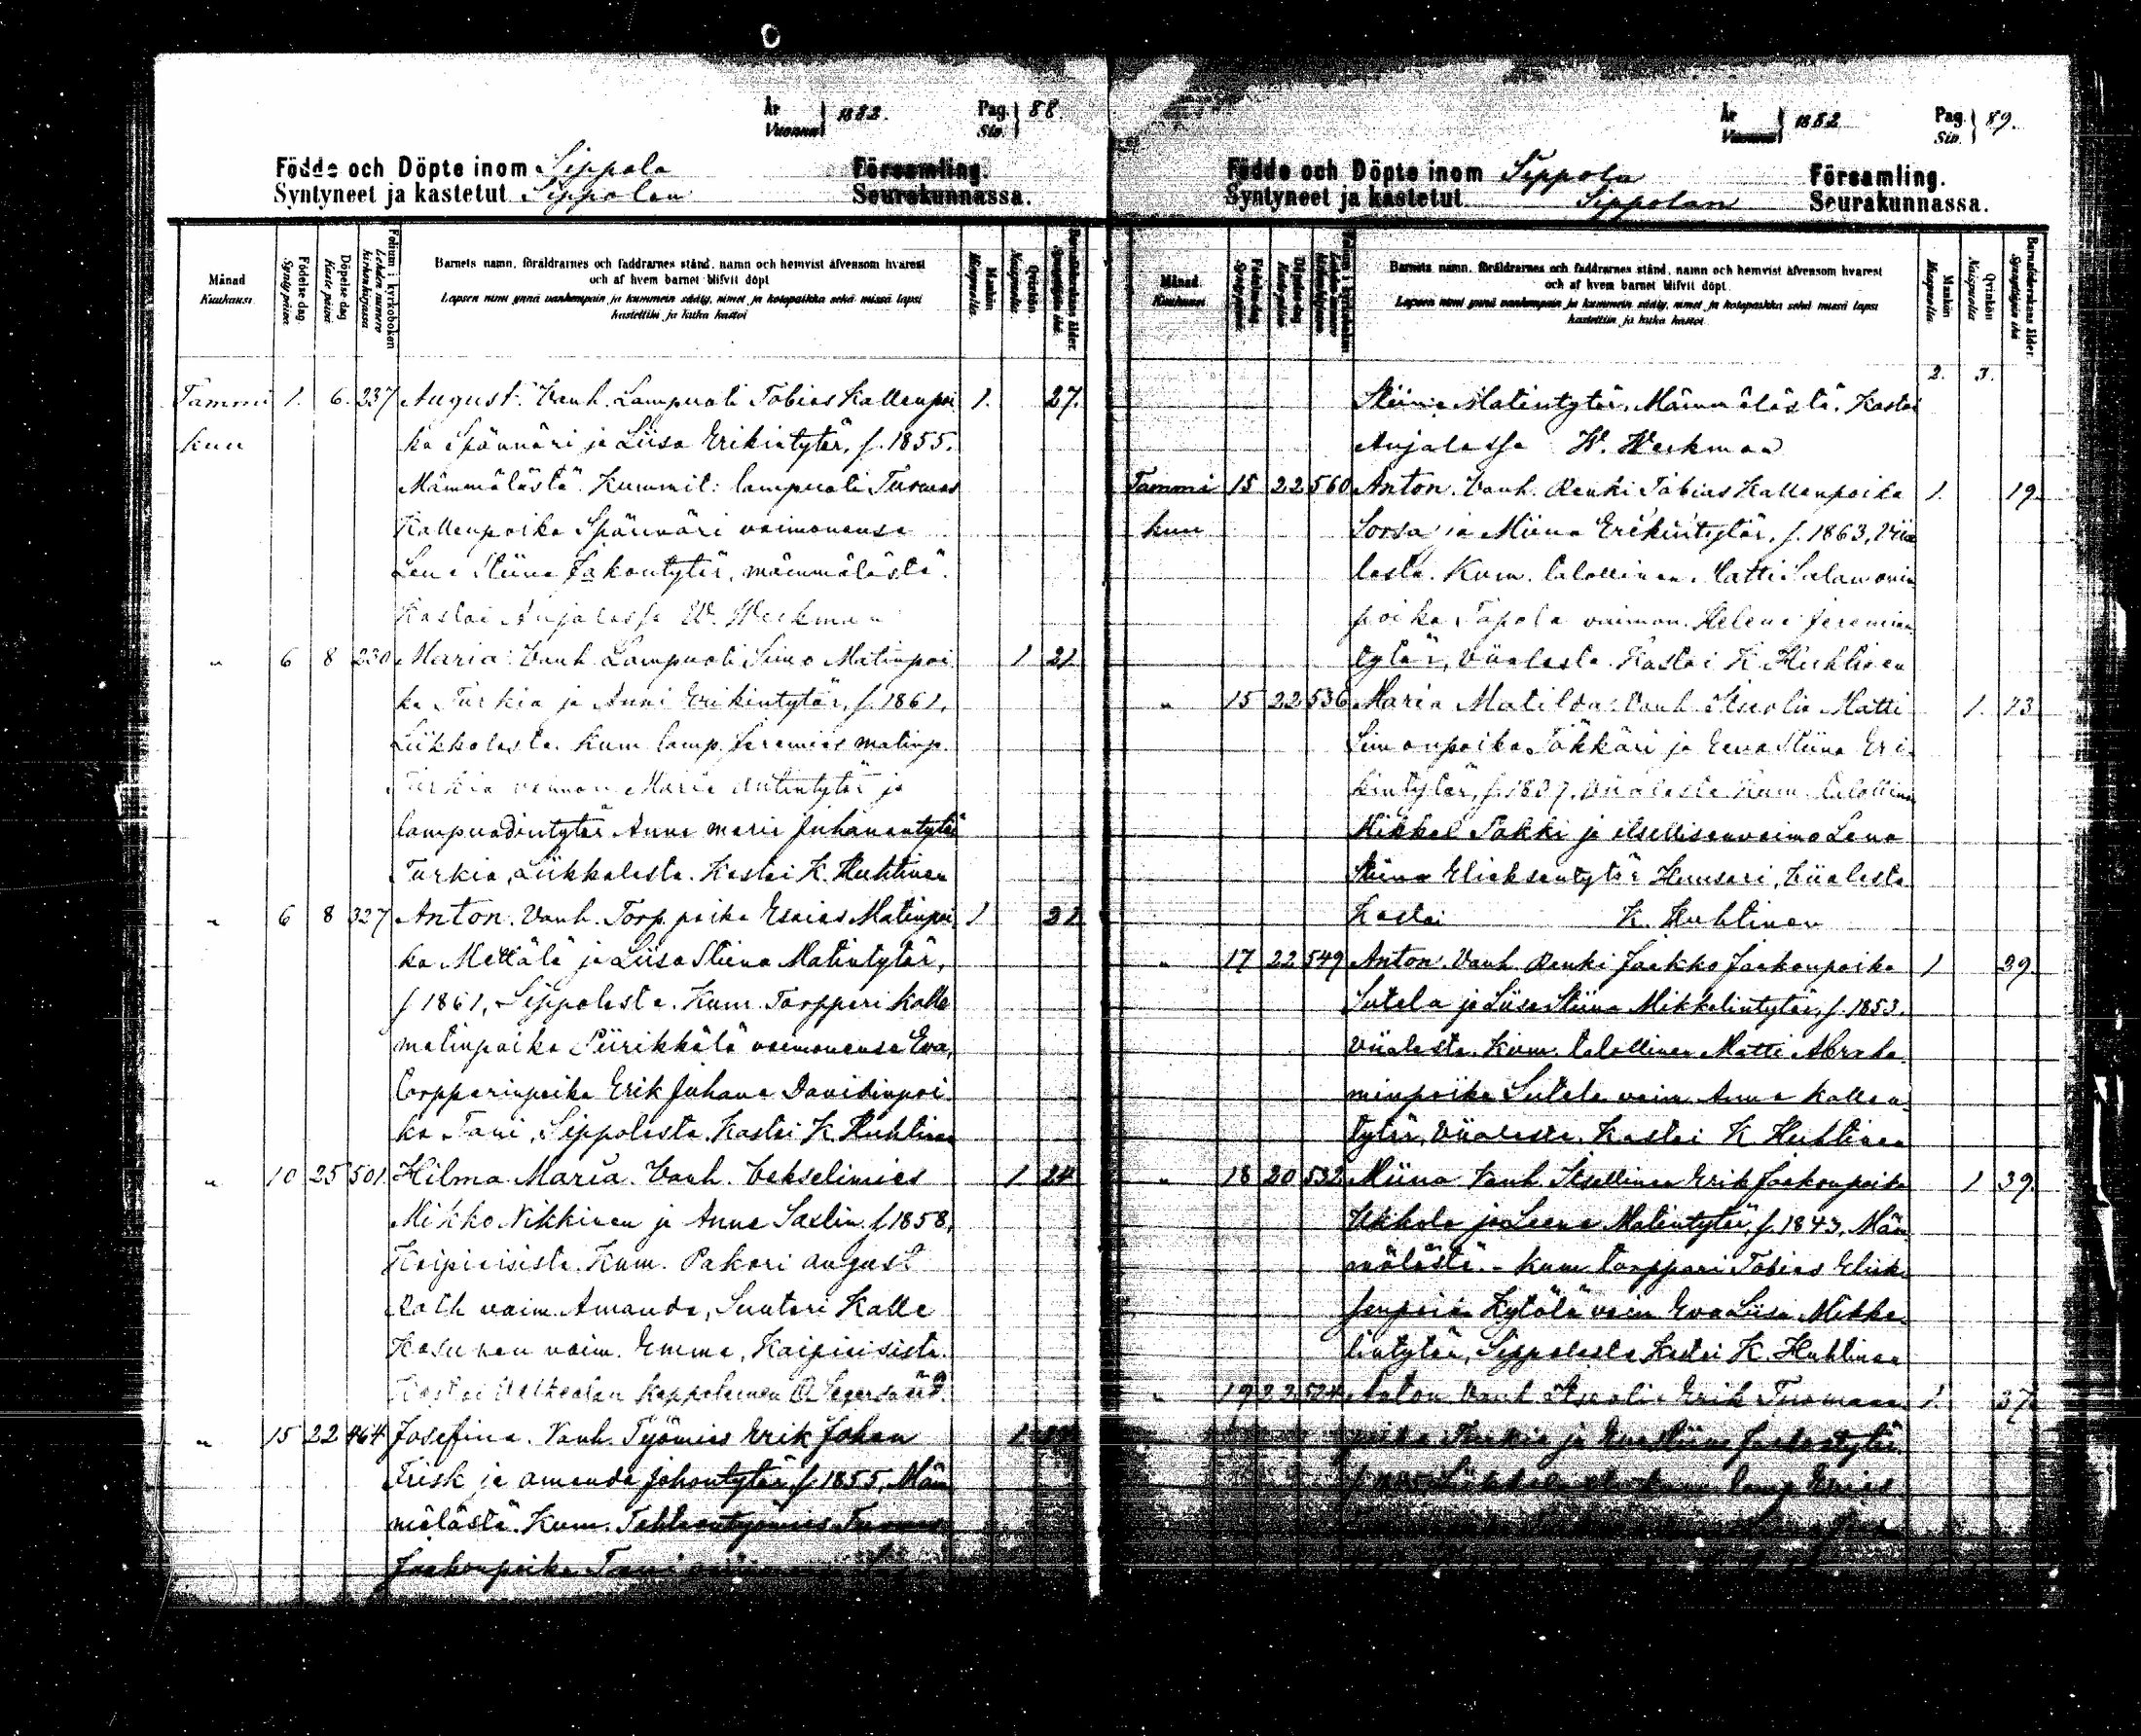 År
Vuonna } 1882.
Pag.
Siv. } 88.
Födde och Döpte inom Sippola Församling.
Syntyneet ja kastetut Sippolan Seurakunnassa.
Månad
Kuukausi
Födelse dag.
Synty päivä
Döpelse dag
Kaste päivä
Folium i kyrkoboken
Lehden numero kirkonkirjassa
Barnets namn, föräldrarnes och faddrarnes stånd, namn och hemvist äfvensom hvarest
och af hvem barnet blifvit döpt
Lapsen nimi ynnä vanhempain ja kummein sääty, nimet ja kotopaikka sekä missä lapsi
kastettiin ja kuka kastoi
Mankön
Miespuolta.
Qvinkön
Naispuolta.
Barnaföderskans ålder.
Synnyttäjän ikä.
Tammi 1. 6. 237 August. Vanh. Lampuoti Tobias Kallenpoi 1. 27.
kuu ka Spännäri ja Liisa Erikintytär, s. 1855.
Mämmälästä. Kummit: lampuoti Tuomas
Kallenpoika Spännäri vaimonensa
Lena Stiina Jakontytär, mämmälästä.
Kastoi Anjalassa W. Weckman
" 6 8 230 Maria. Vanh. Lampuoti Simo Matinpoi 1 21
ka Turkia ja Anni Erikintytär, s. 1861,
Liikkalasta. Kum. lamp. Jeremias matinp.
Turkia vaimon Maria Antintytär ja
lampuodintytär Anna maria Juhanantytär
Turkia, Liikkalasta. Kastoi K. Huhtinen
" 6 8 327 Anton. Vanh. Torp. poika Esaias Matinpoi 1 21
ka Mettälä ja Liisa Stiina Matintytär,
s 1861, Sippolasta. Kum. Torppari Kalle
matinpoika Piirikkälä vaimonensa Eva,
torpparinpoika Erik Juhana Davidinpoi
ka Tani, Sippolasta. Kastoi K. Huhtinen
" 10 25 501. Hilma Maria. Vanh. Vekselimies 1 24
Mikko Nikkinen ja Anna Saxlin s 1858,
Kaipiaisista. Kum. Pakari August
Roth vaim. Amanda, Suutari Kalle
Kosunen vaim. Emma, Kaipiaisista.
Kastoi Valkealan Kappalainen
" 15 22 464 Josefina. Vanh. Työmies Erik Johan 1
Frisk ja Amanda Johontytär, s 1855, Mäm
mälästä. Kum. Tehtaantyömies Tuomas
Jaakonpoika Tani
År
Vuonna } 1882
Pag.
Siv. } 89.
Födde och Döpte inom Sippola Församling.
Syntyneet ja kastetut Sippolan Seurakunnassa.
Månad
Kuukausi
Födelse dag.
Synty päivä
Döpelse dag
Kaste päivä
Barnets namn, föräldrarnes och faddrarnes stånd, namn och hemvist äfvensom hvarest
och af hvem barnet blifvit döpt.
Lapsen nimi ynnä vanhempain ja kummein sääty, nimet ja kotopaikka sekä missä lapsi
kastettiin ja kuka kastoi
Mankön
Miespuolta
Qvinkön
Naispuolta
Barnaföderskans ålder
Synnyttäjän ikä
2. 3.
Stiina Matintytär, Mämmälästä. Kastoi
Anjalassa W. Weckman
Tammi 15 22 560 Anton. Vanh. Renki Tobias Kallenpoika 1. 19
kuu Sorsa ja Miina Erikintytär, s. 1863, Viia
lasta. Kum. talollinen Matti Salamonin
poika Tapola vaimon. Helena Jeremian
tytär, Viialasta. Kastoi K. Huhtinen
" 15 22 536 Maria Matilda. Vanh. Itsellis Matti 1.
Simonpoika Täkkäri ja Eeva Stiina Eri
kintytär, s. 1837. Viialasta Kum. talollinen
Mikkel Pakki ja itsellisenvaimo Lena
Stiina Eliaksentytär Huusari, Viialasta
Kastoi K. Huhtinen
" 17 22 549 Anton. Vanh. Renki Jaakko Jaakonpoika 1 29.
Sutela ja Liisa Stiina Mikkelintytär, s. 1853.
Viialasta. Kum. talollinen Matti Abraha
minpoika Sutela vaim. Anna Kallen
tytär, Viialasta. Kastoi K Huhtinen
" 18 20 532 Miina. Vanh. Itsellinen Erik Jaakonpoika 1 39.
Ukkola ja Leena Matintytär, s. 1843, Mäm
mälästä. - Kum. torppari Tobias Eliak
senpoika Kytölä vaim Eva Liisa Mikke
lintytär, Sippolasta Kastoi K. Huhtinen
" 19 22 524 Anton Vanh. Itsellis Erik Tuomaan 1. 37.
poika Turkia ja Eva Stiina Jaakontytär
lamp Esaias